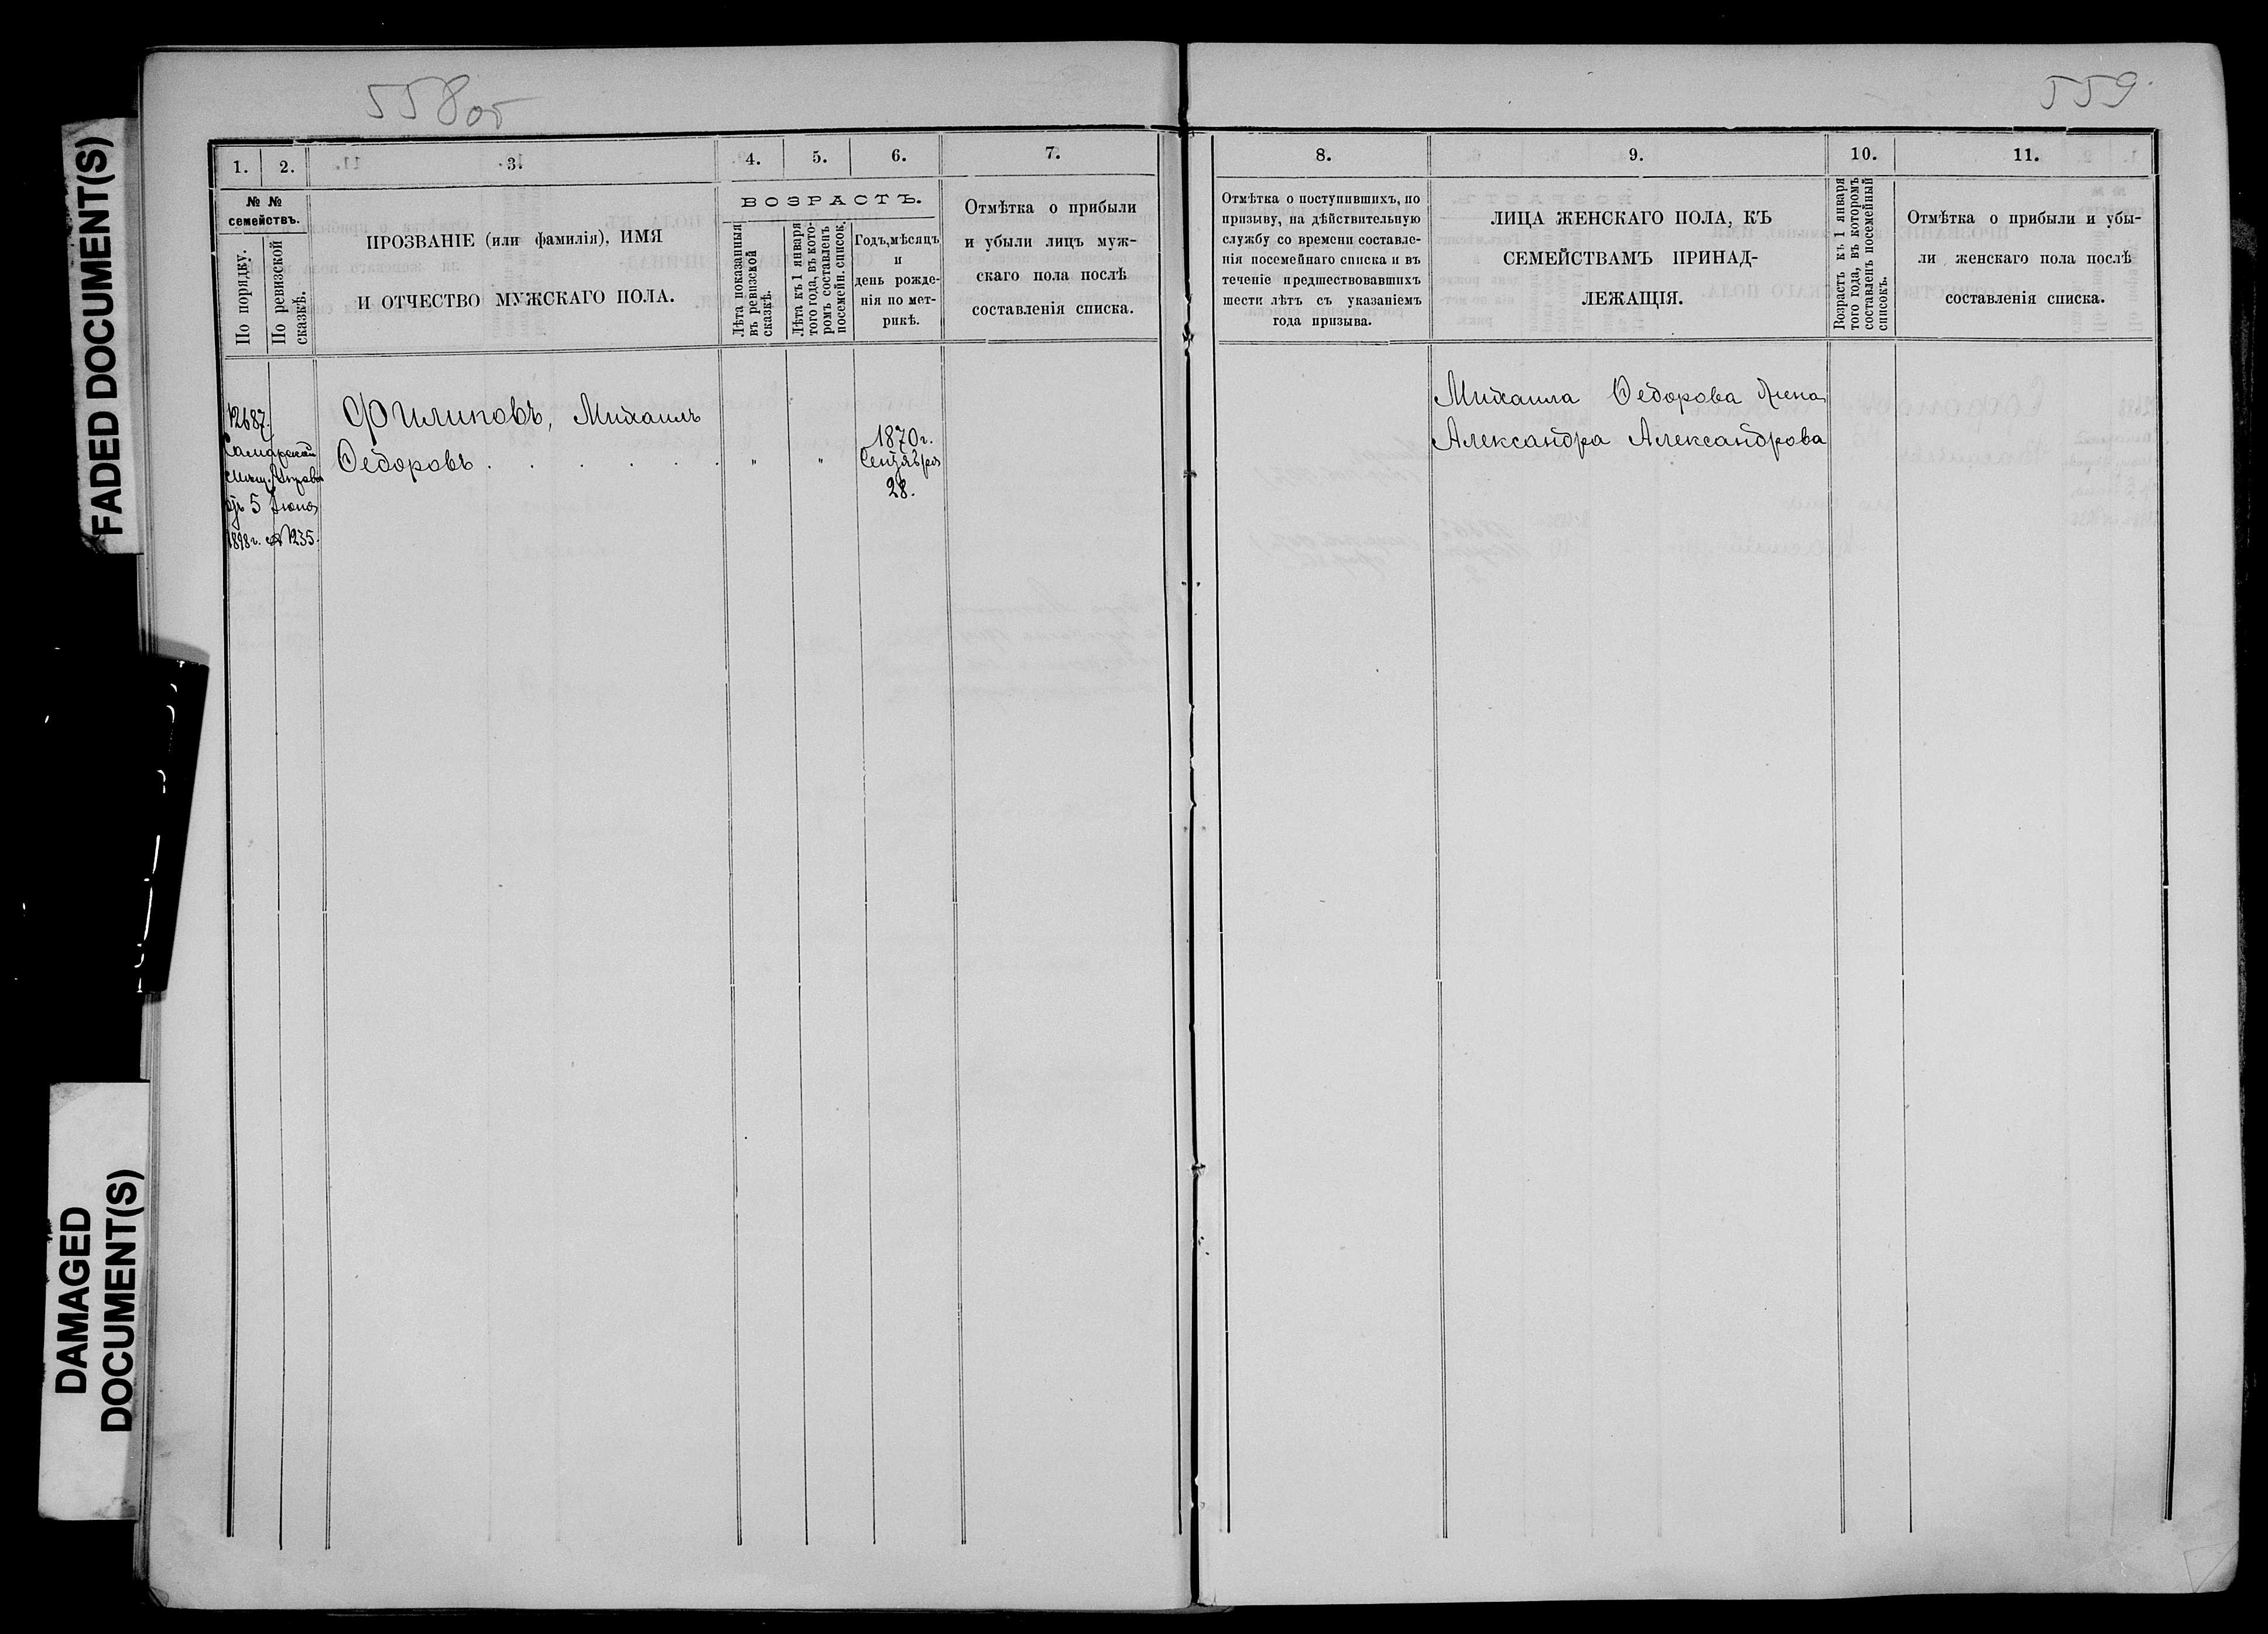 FADED DOCUMENT(S)
DAMAGED
DOCUMENT(S)
558об
1.
2.
3.
4.
5.
6.
7.
№ №
семействъ.
По порядку.
По ревизской
сказкѣ.
ПРОЗВАНІЕ (или фамилія), ИМЯ
И ОТЧЕСТВО МУЖСКАГО ПОЛА.
ВОЗРАСТЪ.
Лѣта показанныя
въ ревизской
сказкѣ.
Лѣта къ 1 января
того года, въ кото-
ромъ составленъ
посемейн. список.
Годъ, мѣсяцъ
и
день рожде-
нія по мет-
рикѣ.
Отмѣтка о прибыли
и убыли лицъ муж-
скаго пола послѣ
составленія списка.
12687.
Самарской
мѣщ. Управы
5 Іюня
1898 г. № 1235.
Филиповъ, Михаилъ
Ѳедоровъ . . . . . .
"
"
1870 г.
Сентября
28.
559
8.
9.
10.
11.
Отмѣтка о поступившихъ, по
призыву, на дѣйствительную
службу со времени составле-
нія посемейнаго списка и въ
теченіе предшествовавшихъ
шести лѣтъ съ указаніемъ
года призыва.
ЛИЦА ЖЕНСКАГО ПОЛА, КЪ
СЕМЕЙСТВАМЪ ПРИНАД-
ЛЕЖАЩІЯ.
Возрастъ къ 1 января
того года, въ которомъ
составленъ посемейный
списокъ.
Отмѣтка о прибыли и убы-
ли женскаго пола послѣ
составленія списка.
Михаила Ѳедорова жена
Александра Александрова